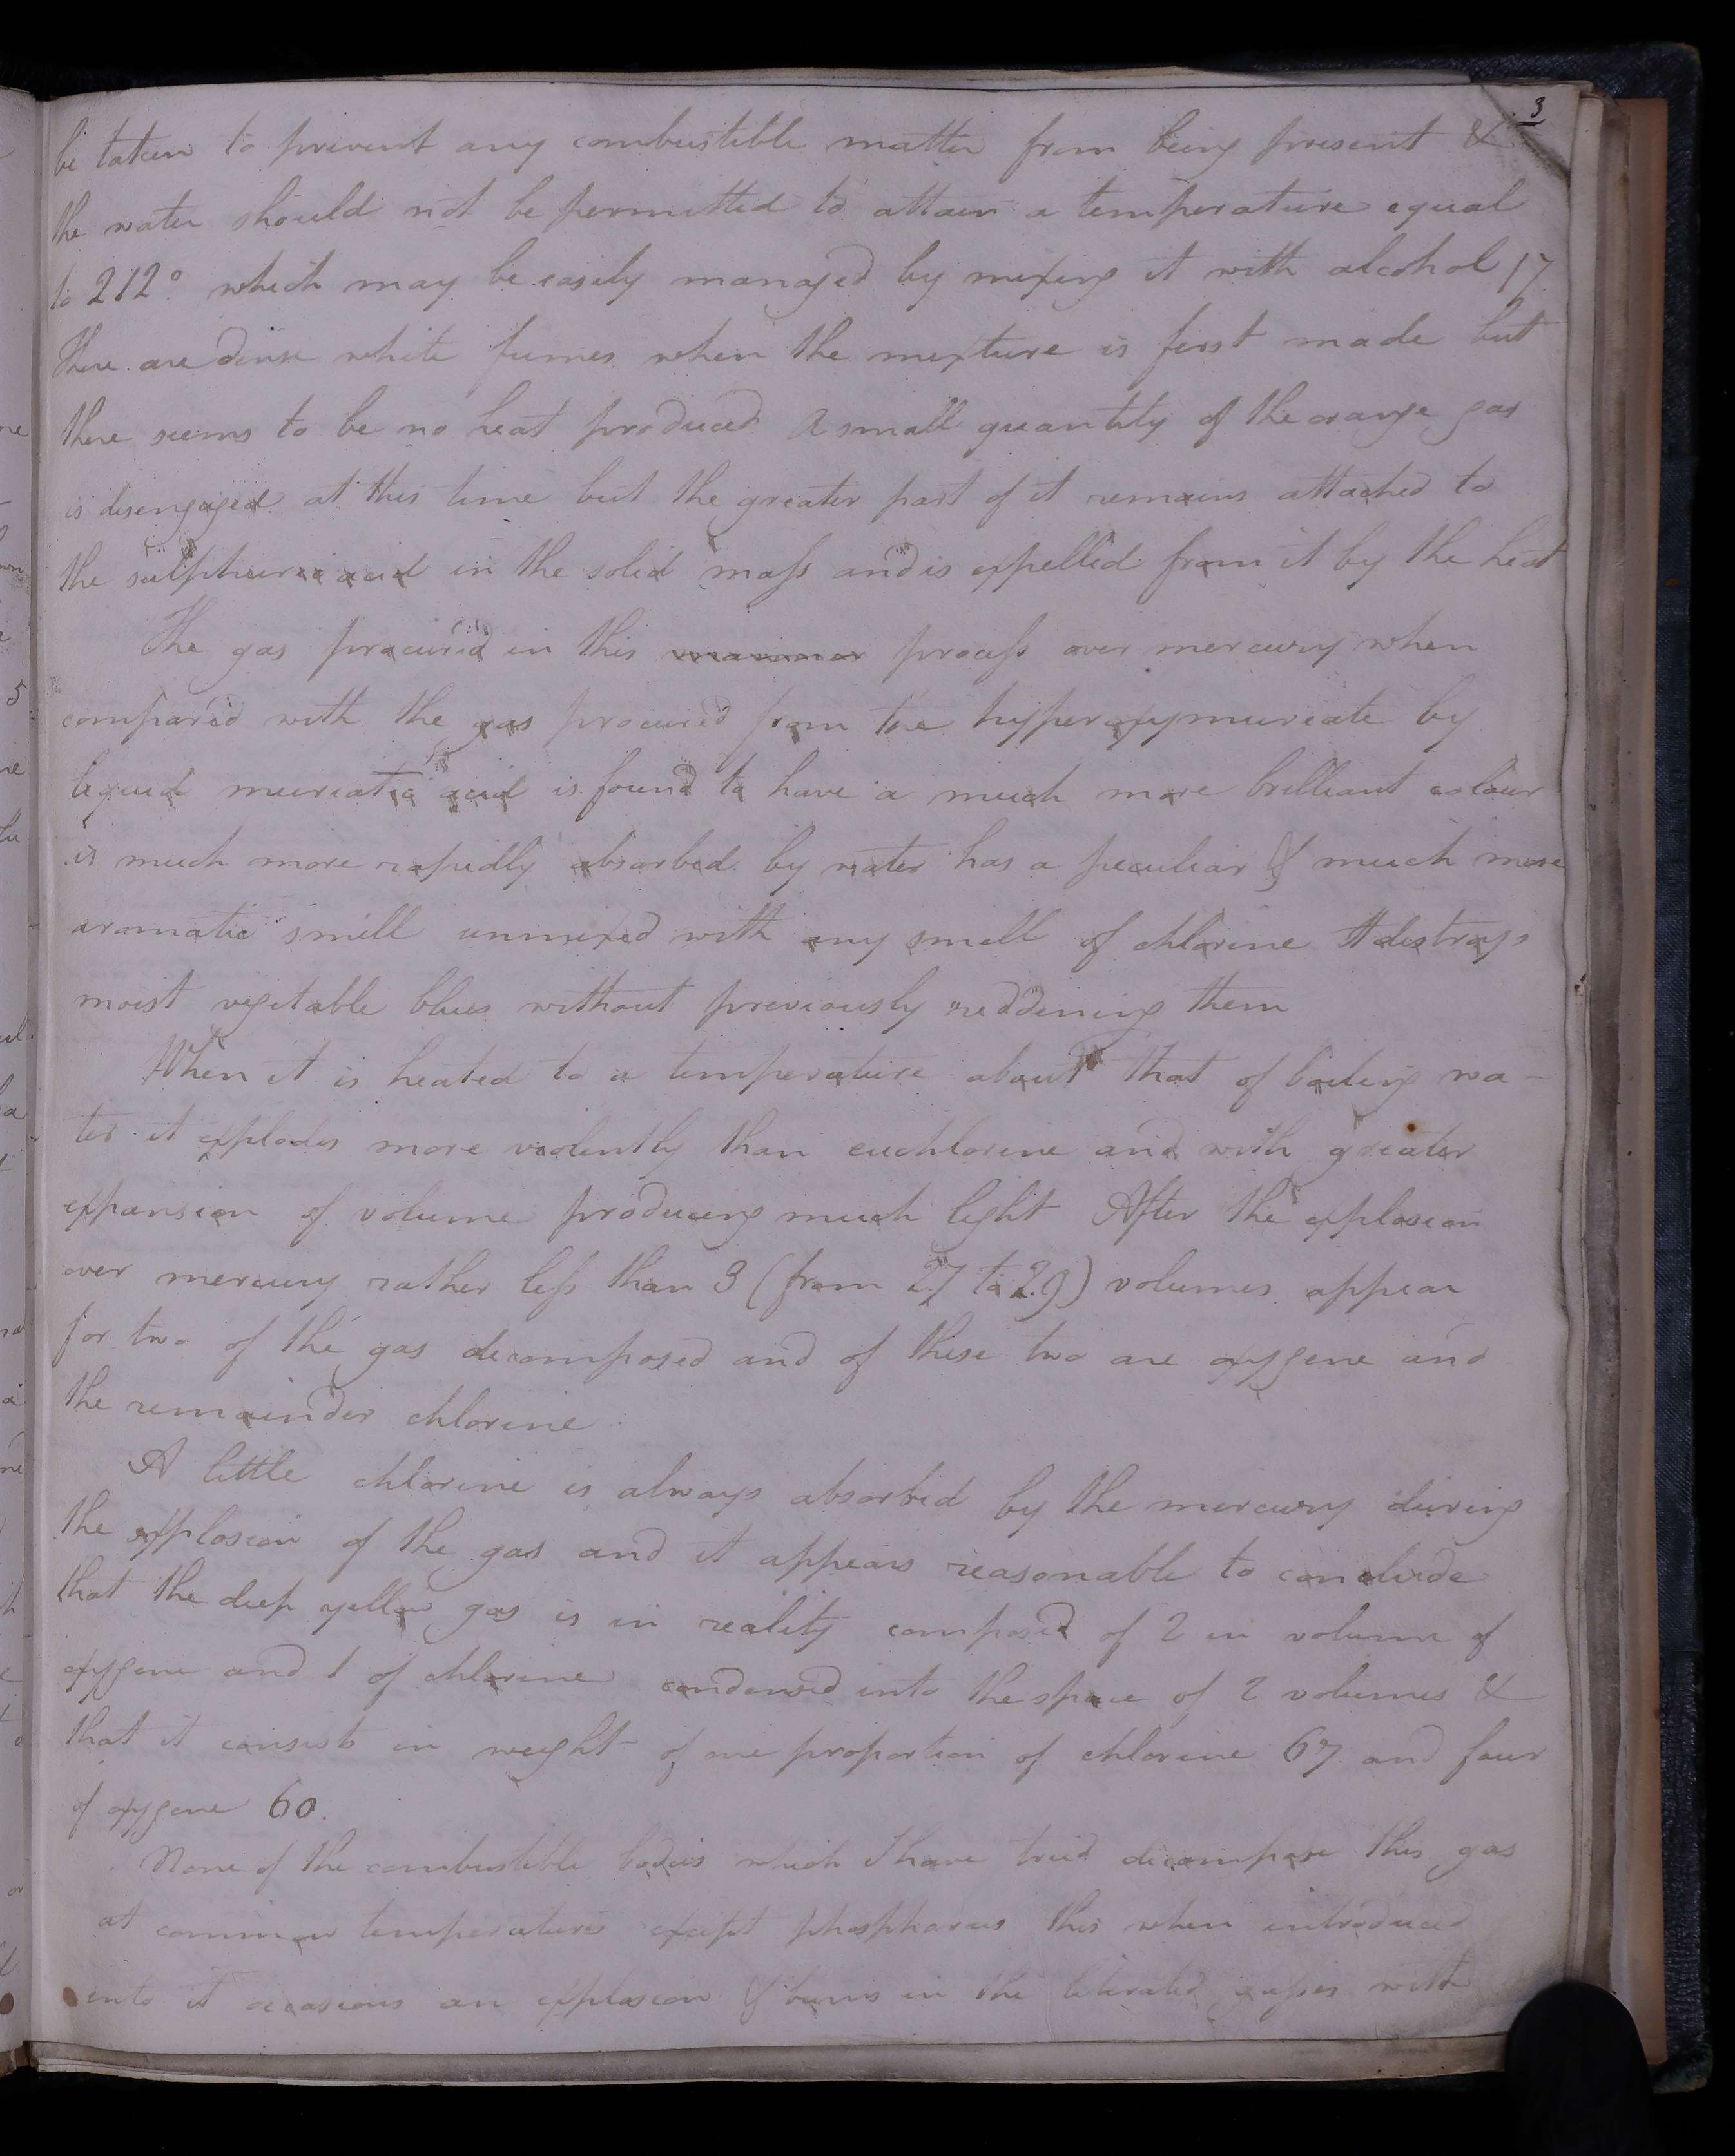 3
be taken to prevent any combustible matter from being present &
the water should not be permitted to attain a temperature equal
to 212° which may be easily managed by mixing it with alcohol
There are dense white fumes when the mixture is first made but
there seems to be no heat produced A small quantity of the orange gas
is disengaged at this time but the greater part of it remains attached to
the sulphuric acid in the solid mass and is expelled from it by the heat
The gas procured in this manner process over mercury when
compared with the gas procured from the hyperoxymuriate by
liquid muriatic acid is found to have a much more brilliant colour
is much more rapidly absorbed by water has a peculiar & much more
aromatic smell unmixed with any smell of chlorine It destroys
moist vegetable blues without previously reddening them
When it is heated to a temperature about that of boiling wa-
ter it explodes more violently than euchlorine and with greater
expansion of volume producing much light After the explosion
over mercury rather less than 3 (from 2.7 to 2.9) volumes appear
for two of the gas decomposed and of these two are oxygene and
the remainder chlorine
A little chlorine is always absorbed by the mercury during
the explosion of the gas and it appears reasonable to conclude
that the deep yellow gas is in reality composed of 2 in volume of
oxygene and 1 of chlorine condensed into the space of 2 volumes &
that it consists in weight of one proportion of chlorine 67 and four
of oxygene 60.
None of the combustible bodies which I have tried decompose this gas
at common temperatures except phosphorus this when introduced
into it occasions an explosion & burns in the liberated gasses with